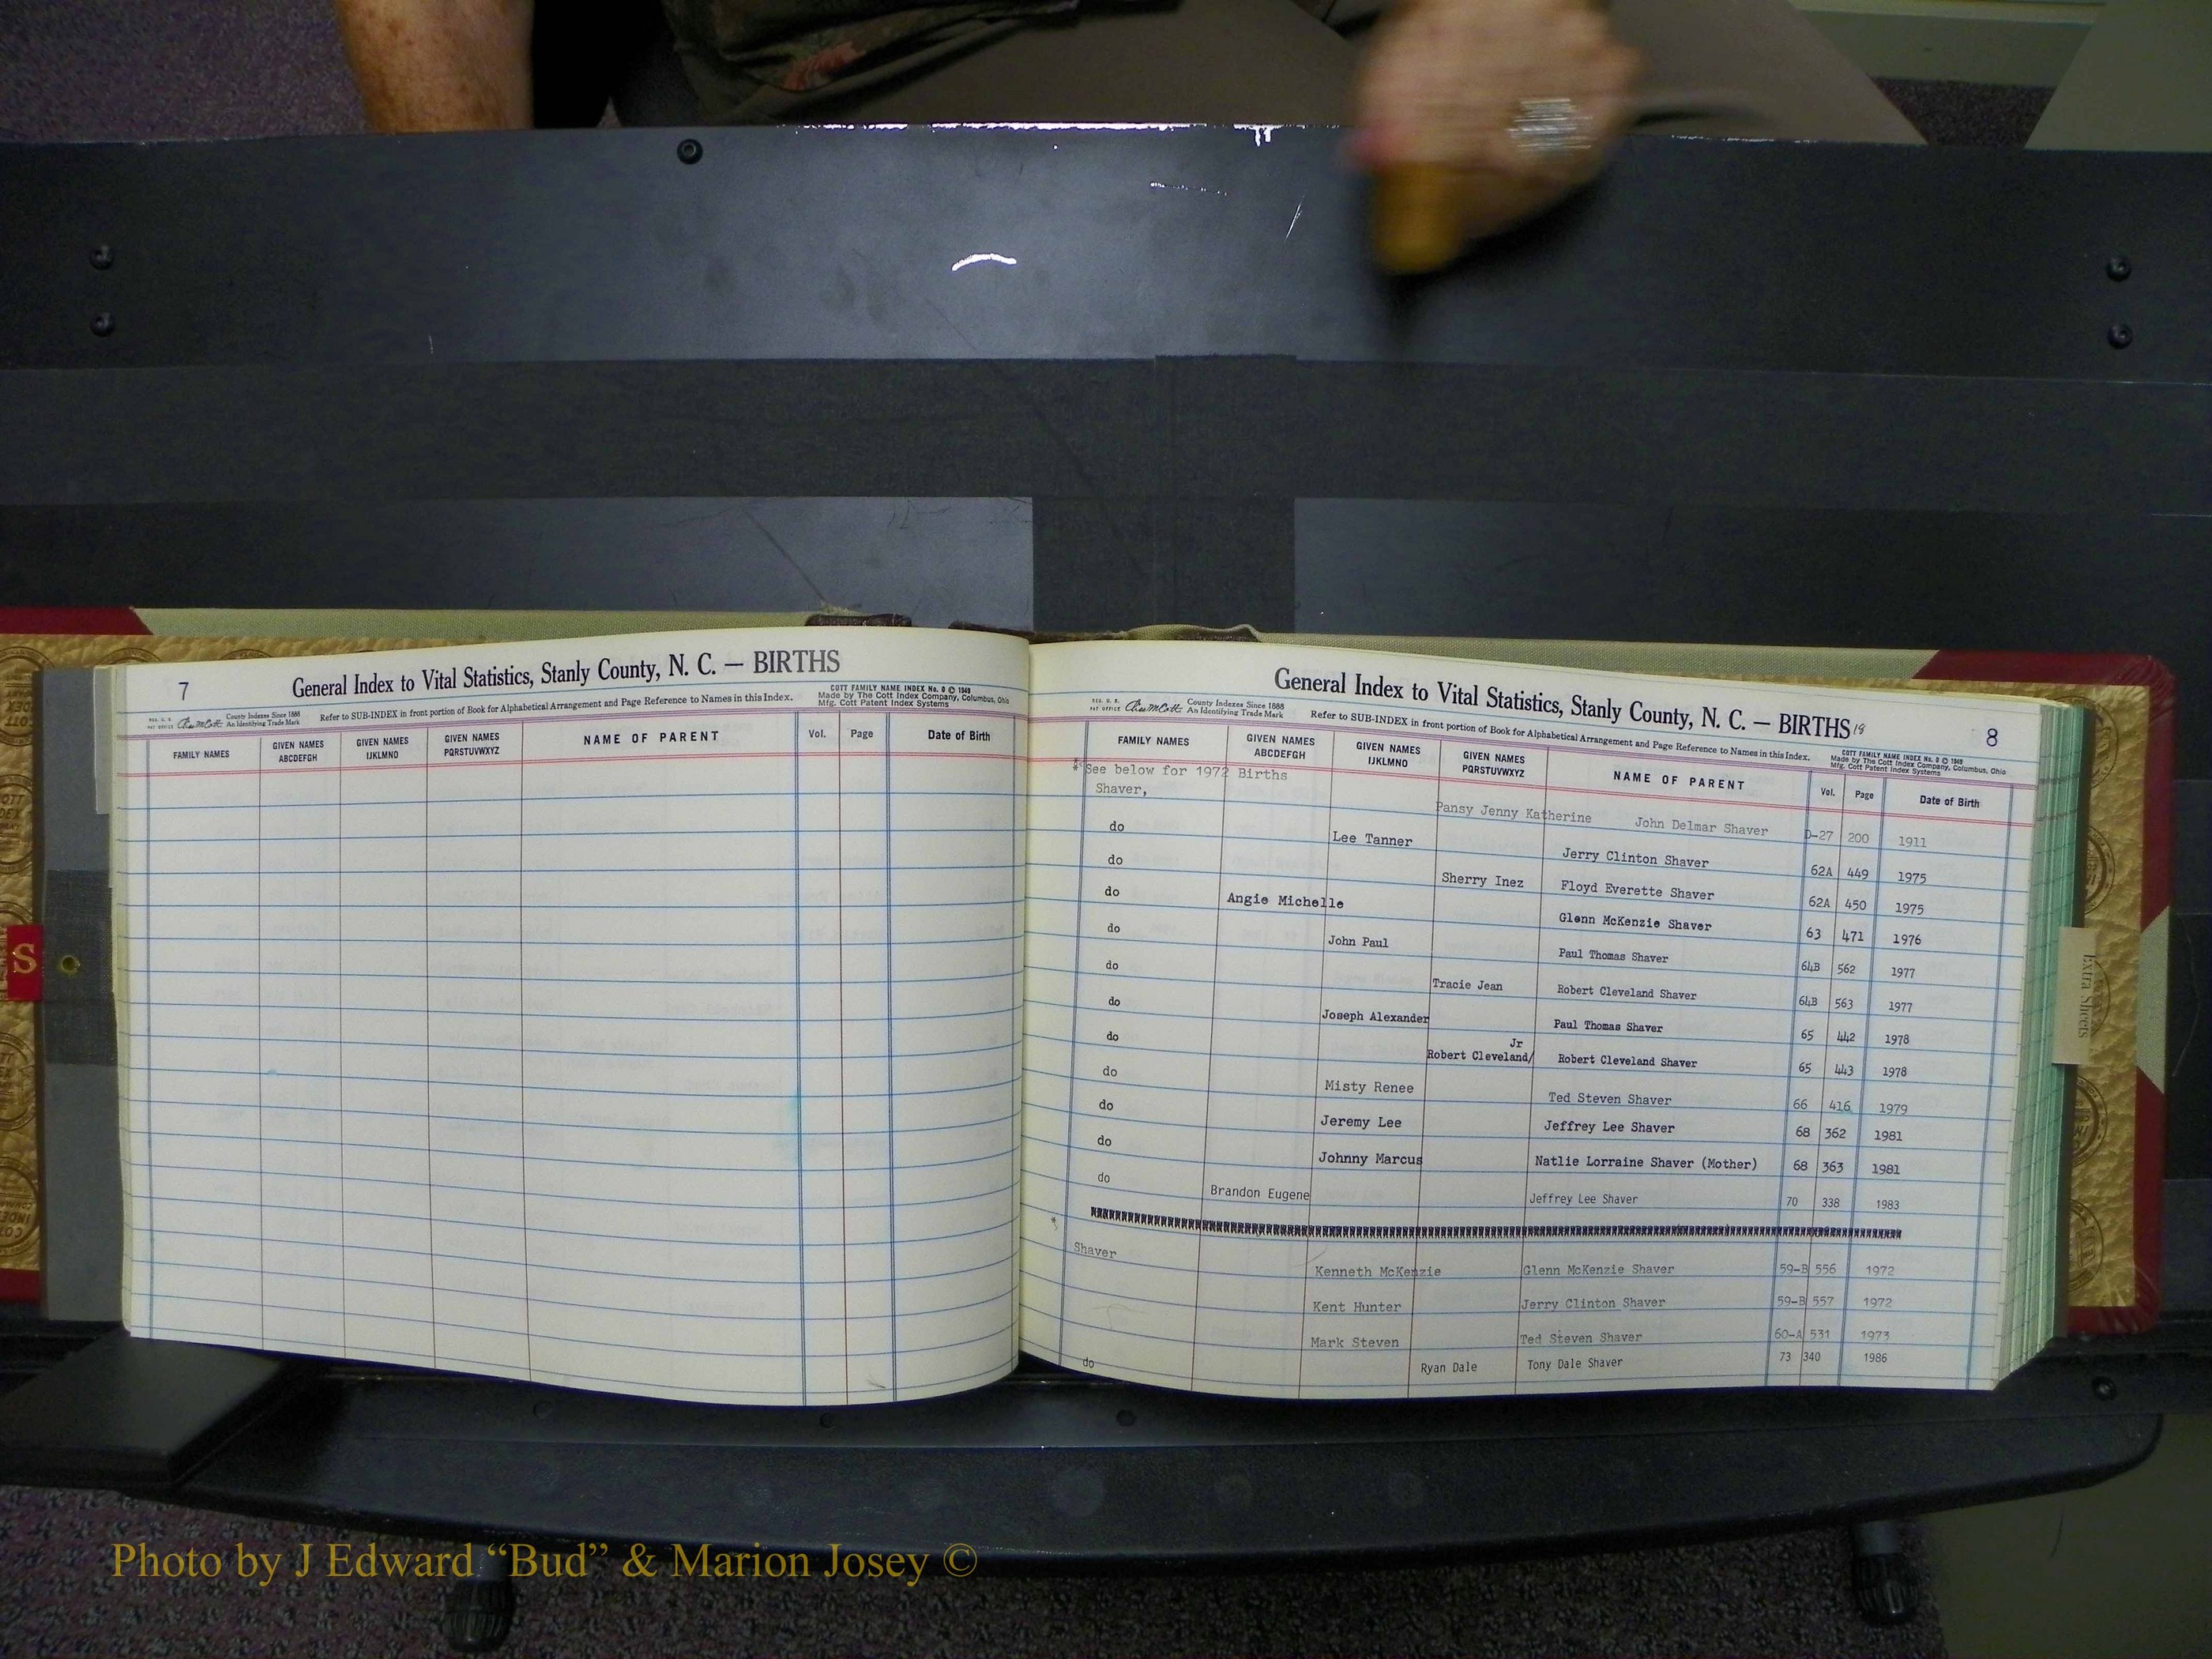 7
General Index to Vital Statistics, Stanly County, N. C. — BIRTHS
REG. U. S. PAT OFFICE County Indexes Since 1888 An Identifying Trade Mark
Refer to SUB-INDEX in front portion of Book for Alphabetical Arrangement and Page Reference to Names in this Index.
COTT FAMILY NAME INDEX No. 0 © 1949
Made by The Cott Index Company, Columbus, Ohio
Mfg. Cott Patent Index Systems
FAMILY NAMES GIVEN NAMES ABCDEFGH GIVEN NAMES IJKLMNO GIVEN NAMES PQRSTUVWXYZ NAME OF PARENT Vol. Page Date of Birth
S
General Index to Vital Statistics, Stanly County, N. C. — BIRTHS 19
8
REG. U. S. PAT OFFICE County Indexes Since 1888 An Identifying Trade Mark
Refer to SUB-INDEX in front portion of Book for Alphabetical Arrangement and Page Reference to Names in this Index.
COTT FAMILY NAME INDEX No. 0 © 1949
Made by The Cott Index Company, Columbus, Ohio
Mfg. Cott Patent Index Systems
FAMILY NAMES GIVEN NAMES ABCDEFGH GIVEN NAMES IJKLMNO GIVEN NAMES PQRSTUVWXYZ NAME OF PARENT Vol. Page Date of Birth
*See below for 1972 Births
Shaver, Pansy Jenny Katherine John Delmar Shaver D-27 200 1911
do Lee Tanner Jerry Clinton Shaver 62A 449 1975
do Sherry Inez Floyd Everette Shaver 62A 450 1975
do Angie Michelle Glenn McKenzie Shaver 63 471 1976
do John Paul Paul Thomas Shaver 64B 562 1977
do Tracie Jean Robert Cleveland Shaver 64B 563 1977
do Joseph Alexander Paul Thomas Shaver 65 442 1978
do Robert Cleveland/ Jr Robert Cleveland Shaver 65 443 1978
do Misty Renee Ted Steven Shaver 66 416 1979
do Jeremy Lee Jeffrey Lee Shaver 68 362 1981
do Johnny Marcus Natlie Lorraine Shaver (Mother) 68 363 1981
do Brandon Eugene Jeffrey Lee Shaver 70 338 1983
*
Shaver Kenneth McKenzie Glenn McKenzie Shaver 59-B 556 1972
Kent Hunter Jerry Clinton Shaver 59-B 557 1972
Mark Steven Ted Steven Shaver 60-A 531 1973
do Ryan Dale Tony Dale Shaver 73 340 1986
Extra Sheets
Photo by J Edward “Bud” & Marion Josey ©